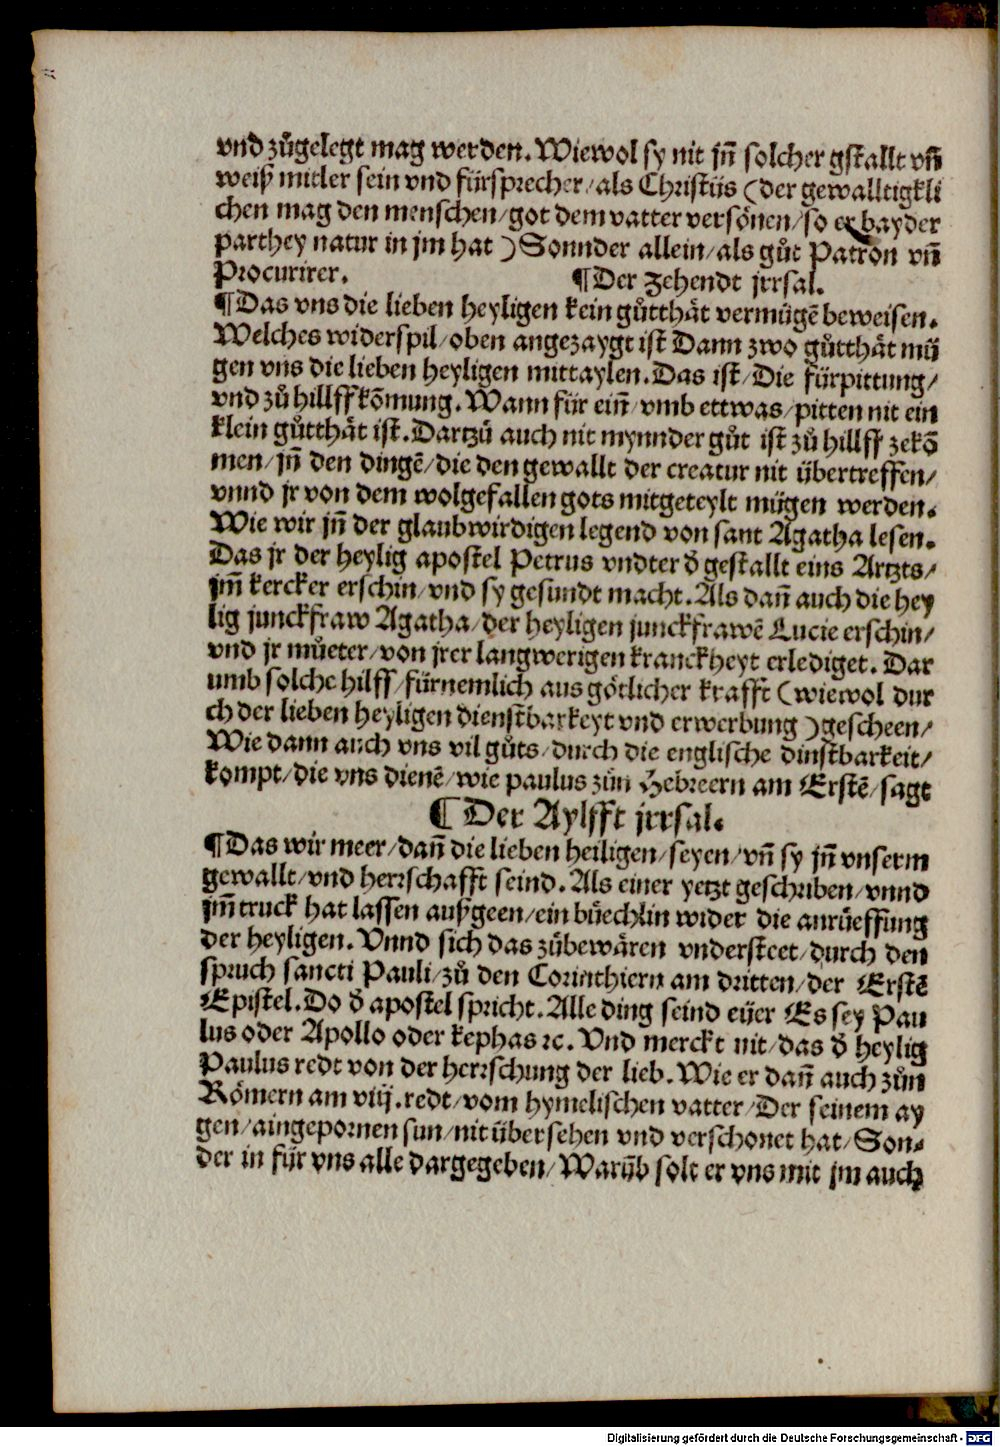 vnd zůgelegt mag werden. Wiewol sy nit jn̄ solcher gstallt vn̄
weiß mitler sein vnd fürsprecher/als Christus (der gewalltigkli
chen mag den menschen/got dem vatter versönen/so er bayder
parthey natur in jm hat) Sonnder allein/als gůt Patron vn̄
Procurirer. ¶Der Zehendt jrrsal.
¶Das vns die lieben heyligen kein gůtthät vermügē beweisen.
Welches widerspil/oben angezaygt ist Dann zwo gůtthät mü
gen vns die lieben heyligen mittaylen. Das ist/Die fürpittung/
vnd zů hillffkōmung. Wann für ein̄/vmb ettwas/pitten nit ein
klein gůtthät ist. Dartzů auch nit mynnder gůt ist zů hillff zekō
men/jn̄ den dingē/die den gewallt der creatur nit übertreffen/
vnnd jr von dem wolgefallen gots mitgeteylt mügen werden.
Wie wir jn̄ der glaubwirdigen legend von sant Agatha lesen.
Das jr der heylig apostel Petrus vndter d̄ gestallt eins Artzts/
jm̄ kercker erschin/vnd sy gesundt macht. Als dan̄ auch die hey
lig junckfraw Agatha/der heyligen junckfrawē Lucie erschin/
vnd jr můeter/von jrer langwerigen kranckheyt erlediget. Dar
umb solche hilff/fürnemlich aus götlicher krafft (wiewol dur
ch der lieben heyligen dienstbarkeyt vnd erwerbung) gescheen/
Wie dann auch vns vil gůts/durch die englische dinstbarkeit/
kompt/die vns dienē/wie paulus zůn Hebreern am Erstē/sagt
¶ Der Aylfft jrrsal.
¶Das wir meer/dan̄ die lieben heiligen/seyen/vn̄ sy jn̄ vnserm
gewallt/vnd herrschafft seind. Als einer yetzt geschriben/vnnd
jm̄ truck hat lassen außgeen/ein büechlin wider die anrüeffung
der heyligen. Vnnd sich das zůbewären vndersteet/durch den
spruch sancti Pauli/zů den Corinthiern am dritten/der Erstē
Epistel. Do d̄ apostel spricht. Alle ding seind eüer Es sey Pau
lus oder Apollo oder kephas ⁊c. Vnd merckt nit/das d̄ heylig
Paulus redt von der herrschung der lieb. Wie er dan̄ auch zůn
Römern am viij. redt/vom hymelischen vatter/Der seinem ay
gen/aingepornen sun/nit übersehen vnd verschonet hat/Son-
der in für vns alle dargegeben/Warūb solt er vns mit jm auch
Digitalisierung gefördert durch die Deutsche Forschungsgemeinschaft - DFG